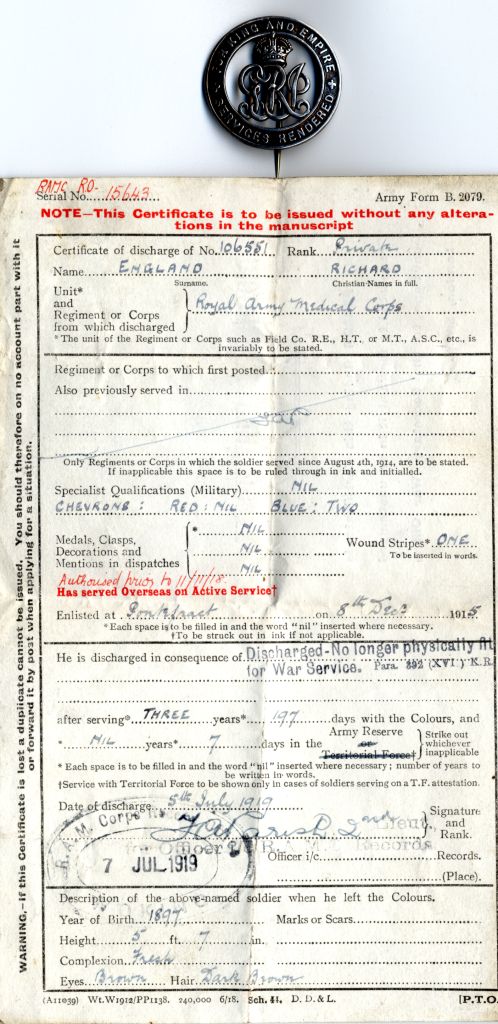 FOR KING AND EMPIRE
SERVICES RENDERED
RAMC RO-
Serial No. 15643 Army Form B. 2079.
NOTE—This Certificate is to be issued without any altera-
tions in the manuscript
Certificate of discharge of No. 106551 Rank Private
Name ENGLAND RICHARD
Surname. Christian Names in full.
Unit*
and
Regiment or Corps
from which discharged
Royal Army Medical Corps
* The unit of the Regiment or Corps such as Field Co. R.E., H.T. or M.T., A.S.C., etc., is
invariably to be stated.
Regiment or Corps to which first posted
Also previously served in
Only Regiments or Corps in which the soldier served since August 4th, 1914, are to be stated.
If inapplicable this space is to be ruled through in ink and initialled.
Specialist Qualifications (Military) NIL
CHEVRONS: RED: NIL BLUE: TWO
Medals, Clasps,
Decorations and
Mentions in dispatches
* NIL
NIL
NIL
Wound Stripes* ONE
To be inserted in words.
Authorised prior to 11/11/18.
Has served Overseas on Active Service†
Enlisted at Pontefract on 8th Decr 1915
*Each space is to be filled in and the word "nil" inserted where necessary.
†To be struck out in ink if not applicable.
He is discharged in consequence of Discharged-No longer physically fit
for War Service. Para. 392 (XVI) K.R.
after serving* THREE years* 197 days with the Colours, and
* NIL years* 7 days in the Army Reserve
or
Territorial Force†
Strike out
whichever
inapplicable
* Each space is to be filled in and the word "nil" inserted where necessary; number of years to
be written in words.
†Service with Territorial Force to be shown only in cases of soldiers serving on a T.F. attestation.
Date of discharge 5th July 1919
2nd Lieut.
Signature
and
Rank.
for Officer i/c R.A.M.C. Records
Officer i/c Records.
(Place).
R.A.M. Corps
7 JUL 1919
Description of the above-named soldier when he left the Colours.
Year of Birth 1897 Marks or Scars
Height 5 ft. 7 in.
Complexion Fresh
Eyes Brown Hair Dark Brown
(A11039) Wt.W1912/PP1138. 240,000 6/18. Sch. 44. D. D. & L. [P.T.O.
WARNING.—If this Certificate is lost a duplicate cannot be issued. You should therefore on no account part with it
or forward it by post when applying for a situation.